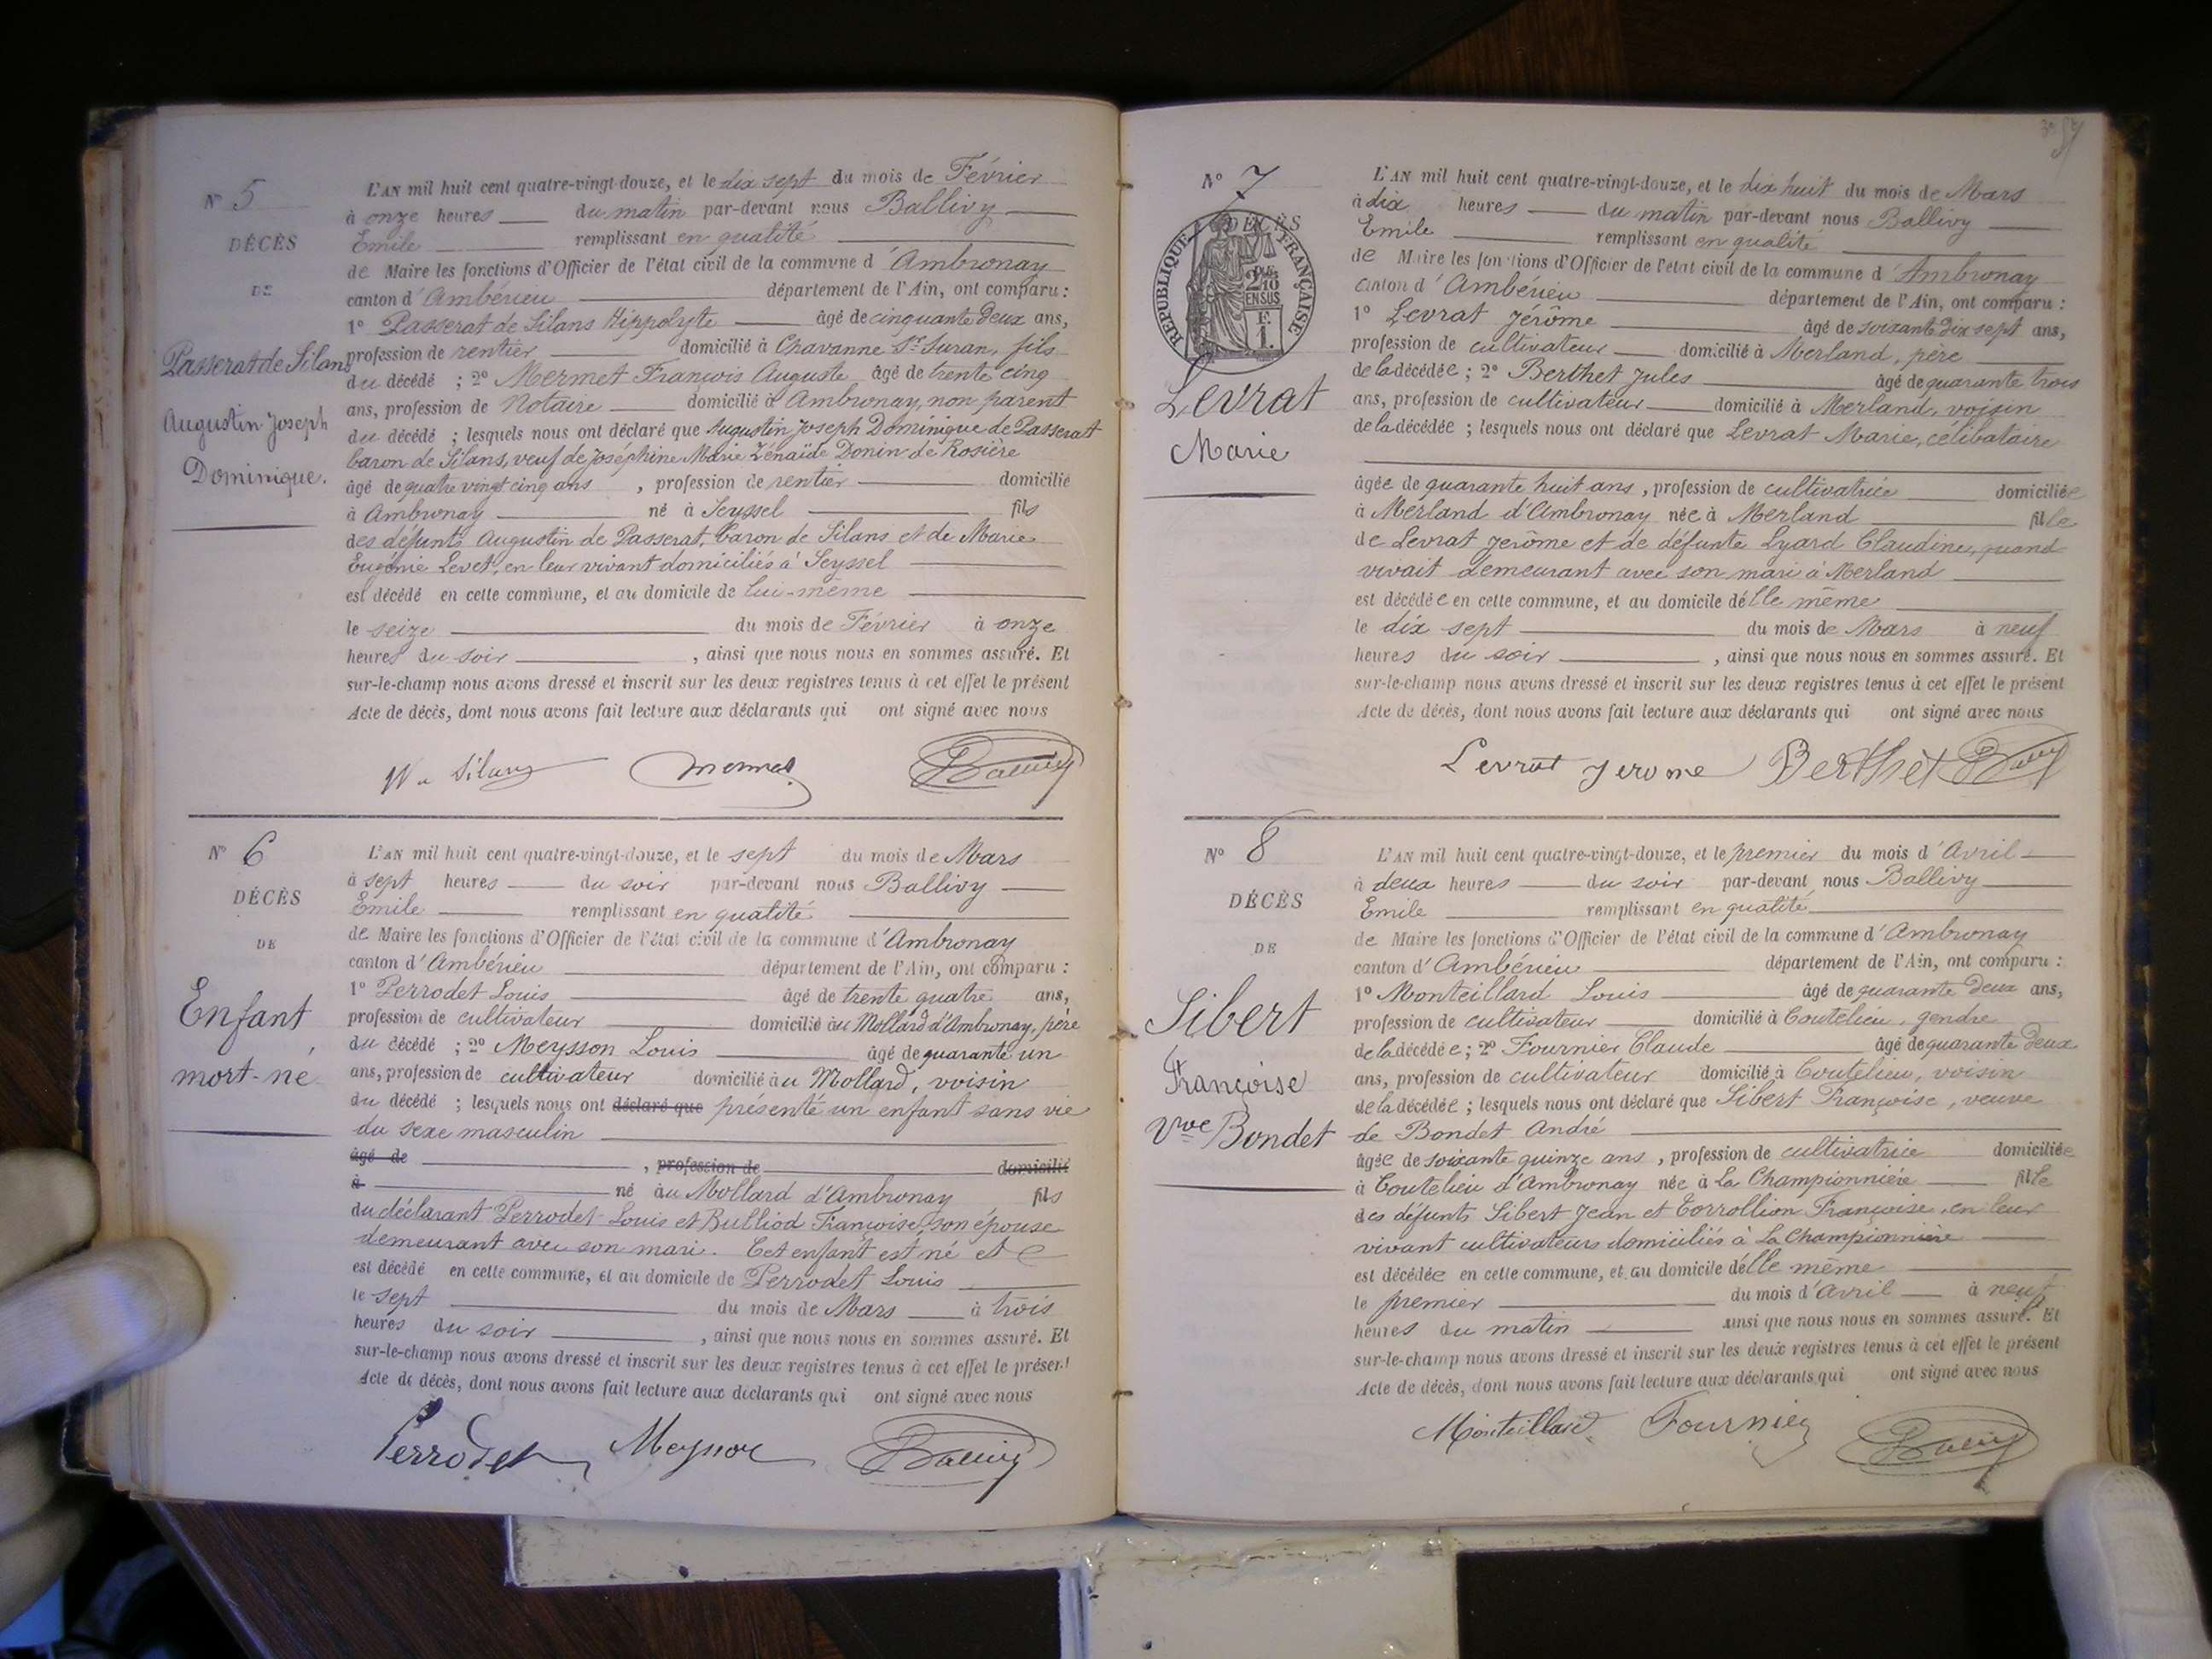 N° 5
DÉCÈS
DE
Passerat de Silans
Augustin Joseph
Dominique.
L'AN mil huit cent quatre-vingt-douze, et le dix sept du mois de Février
à onze heures du matin par-devant nous Ballivy
Emile remplissant en qualité
de Maire les fonctions d'Officier de l'état civil de la commune d'Ambronay
canton d'Ambérieu département de l'Ain, ont comparu :
1° Passerat de Silans Hippolyte âgé de cinquante deux ans,
profession de rentier domicilié à Chavanne St Suran, fils
du décédé ; 2° Mermet François Auguste âgé de trente cinq
ans, profession de Notaire domicilié à Ambronay, non parent
du décédé ; lesquels nous ont déclaré que Augustin Joseph Dominique de Passerat
baron de Silans, veuf de Joséphine Marie Zénaïde Donin de Rosière
âgé de quatre vingt cinq ans, profession de rentier domicilié
à Ambronay né à Seyssel fils
des défunts Augustin de Passerat, baron de Silans et de Marie
Eugénie Levet, en leur vivant domiciliés à Seyssel
est décédé en cette commune, et au domicile de lui-même
le seize du mois de Février à onze
heures du soir, ainsi que nous nous en sommes assuré. Et
sur-le-champ nous avons dressé et inscrit sur les deux registres tenus à cet effet le présent
Acte de décès, dont nous avons fait lecture aux déclarants qui ont signé avec nous
Silans Mermet Ballivy
N° 6
DÉCÈS
DE
Enfant
mort-né
L'AN mil huit cent quatre-vingt-douze, et le sept du mois de Mars
à sept heures du soir par-devant nous Ballivy
Emile remplissant en qualité
de Maire les fonctions d'Officier de l'état civil de la commune d'Ambronay
canton d'Ambérieu département de l'Ain, ont comparu :
1° Perrodet Louis âgé de trente quatre ans,
profession de cultivateur domicilié au Mollard d'Ambronay, père
du décédé ; 2° Meysson Louis âgé de quarante un
ans, profession de cultivateur domicilié au Mollard, voisin
du décédé ; lesquels nous ont déclaré que présenté un enfant sans vie
du sexe masculin
âgé de , profession de domicilié
à né au Mollard d'Ambronay fils
du déclarant Perrodet Louis et Bulliod Françoise, son épouse
demeurant avec son mari. Cet enfant est né et
est décédé en cette commune, et au domicile de Perrodet Louis
le sept du mois de Mars à trois
heures du soir, ainsi que nous nous en sommes assuré. Et
sur-le-champ nous avons dressé et inscrit sur les deux registres tenus à cet effet le présent
Acte de décès, dont nous avons fait lecture aux déclarants qui ont signé avec nous
Perrodet Meysson Ballivy
N° 7
DÉCÈS
RÉPUBLIQUE FRANÇAISE
2/10
EN SUS
F.
1.
Levrat
Marie
L'AN mil huit cent quatre-vingt-douze, et le dix huit du mois de Mars
à dix heures du matin par-devant nous Ballivy
Emile remplissant en qualité
de Maire les fonctions d'Officier de l'état civil de la commune d'Ambronay
canton d'Ambérieu département de l'Ain, ont comparu :
1° Levrat Jérôme âgé de soixante dix sept ans,
profession de cultivateur domicilié à Merland, père
de la décédée ; 2° Berthet Jules âgé de quarante trois
ans, profession de cultivateur domicilié à Merland, voisin
de la décédée ; lesquels nous ont déclaré que Levrat Marie, célibataire
âgée de quarante huit ans, profession de cultivatrice domiciliée
à Merland d'Ambronay née à Merland fille
de Levrat Jerôme et de défunte Lyard Claudine, quand
vivait demeurant avec son mari à Merland
est décédée en cette commune, et au domicile d'elle même
le dix sept du mois de Mars à neuf
heures du soir, ainsi que nous nous en sommes assuré. Et
sur-le-champ nous avons dressé et inscrit sur les deux registres tenus à cet effet le présent
Acte de décès, dont nous avons fait lecture aux déclarants qui ont signé avec nous
Levrat Jerome Berthet Ballivy
N° 8
DÉCÈS
DE
Sibert
Françoise
Vve Bondet
L'AN mil huit cent quatre-vingt-douze, et le premier du mois d'Avril
à deux heures du soir par-devant nous Ballivy
Emile remplissant en qualité
de Maire les fonctions d'Officier de l'état civil de la commune d'Ambronay
canton d'Ambérieu département de l'Ain, ont comparu :
1° Monteillard Louis âgé de quarante deux ans,
profession de cultivateur domicilié à Coutelieu, gendre
de la décédée ; 2° Fournier Claude âgé de quarante deux
ans, profession de cultivateur domicilié à Coutelieu, voisin
de la décédée ; lesquels nous ont déclaré que Sibert Françoise, veuve
de Bondet André
âgée de soixante quinze ans, profession de cultivatrice domiciliée
à Coutelieu d'Ambronay née à La Championnière fille
des défunts Sibert Jean et Corrollion Françoise, en leur
vivant cultivateurs domiciliés à La Championnière
est décédée en cette commune, et au domicile d'elle même
le premier du mois d'Avril à neuf
heures du matin ainsi que nous nous en sommes assuré. Et
sur-le-champ nous avons dressé et inscrit sur les deux registres tenus à cet effet le présent
Acte de décès, dont nous avons fait lecture aux déclarants qui ont signé avec nous
Monteillard Fournier Ballivy